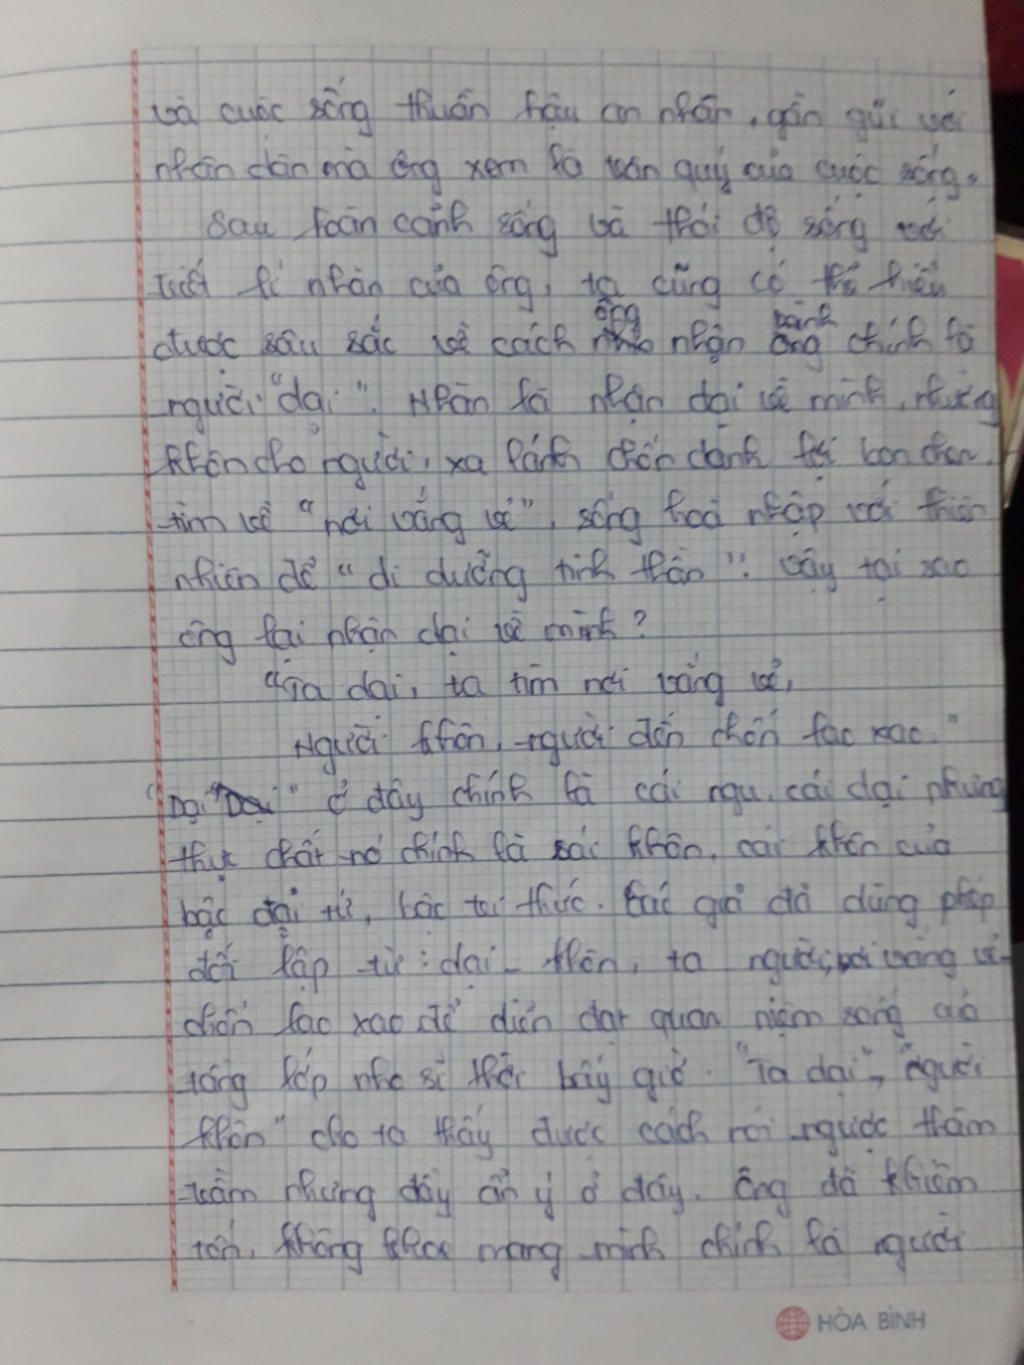 và cuộc sống thuần hậu an nhàn, gần gũi với
nhân dân mà ông xem là quý của cuộc sống.
Sau hoàn cảnh sống và thái độ sống với
triết lí nhàn của ông, ta cũng có thể hiểu
được sâu sắc về cách ông nhận mình chính là
người "dại". Nhàn là nhận dại về mình, nhường
khôn cho người, xa lánh chốn danh lợi bon chen
tìm về "nơi vắng vẻ", sống hoà nhập với thiên
nhiên để "di dưỡng tinh thần". Vậy tại sao
ông lại nhận dại về mình?
"Ta dại, ta tìm nơi vắng vẻ,
Người khôn, người đến chốn lao xao."
"Dại" ở đây chính là cái ngu, cái dại nhưng
thực chất nó chính là cái khôn, cái khôn của
bậc đại trí, bậc trí thức. Tác giả đã dùng phép
đối lập từ: dại - khôn, ta người, nơi vắng vẻ -
chốn lao xao để diễn đạt quan niệm sống của
tầng lớp nho sĩ thời bấy giờ. "Ta dại", "người
khôn" cho ta thấy được cách nói ngược thâm
trầm nhưng đầy ẩn ý ở đây. Ông đã khiêm
tốn, không khoe mang mình chính là người
HÒA BÌNH